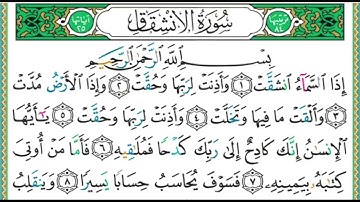 ترتيبها ٨٤ سُورَةُ الِانْشِقَاقِ آياتها ٢٥
بِسْمِ اللَّهِ الرَّحْمَٰنِ الرَّحِيمِ
إِذَا السَّمَآءُ انشَقَّتْ ١ وَأَذِنَتْ لِرَبِّهَا وَحُقَّتْ ٢ وَإِذَا الْأَرْضُ مُدَّتْ
٣ وَأَلْقَتْ مَا فِيهَا وَتَخَلَّتْ ٤ وَأَذِنَتْ لِرَبِّهَا وَحُقَّتْ ٥ يَٰٓأَيُّهَا
الْإِنسَٰنُ إِنَّكَ كَادِحٌ إِلَىٰ رَبِّكَ كَدْحًا فَمُلَٰقِيهِ ٦ فَأَمَّا مَنْ أُوتِىَ
كِتَٰبَهُۥ بِيَمِينِهِۦ ٧ فَسَوْفَ يُحَاسَبُ حِسَابًا يَسِيرًا ٨ وَيَنقَلِبُ